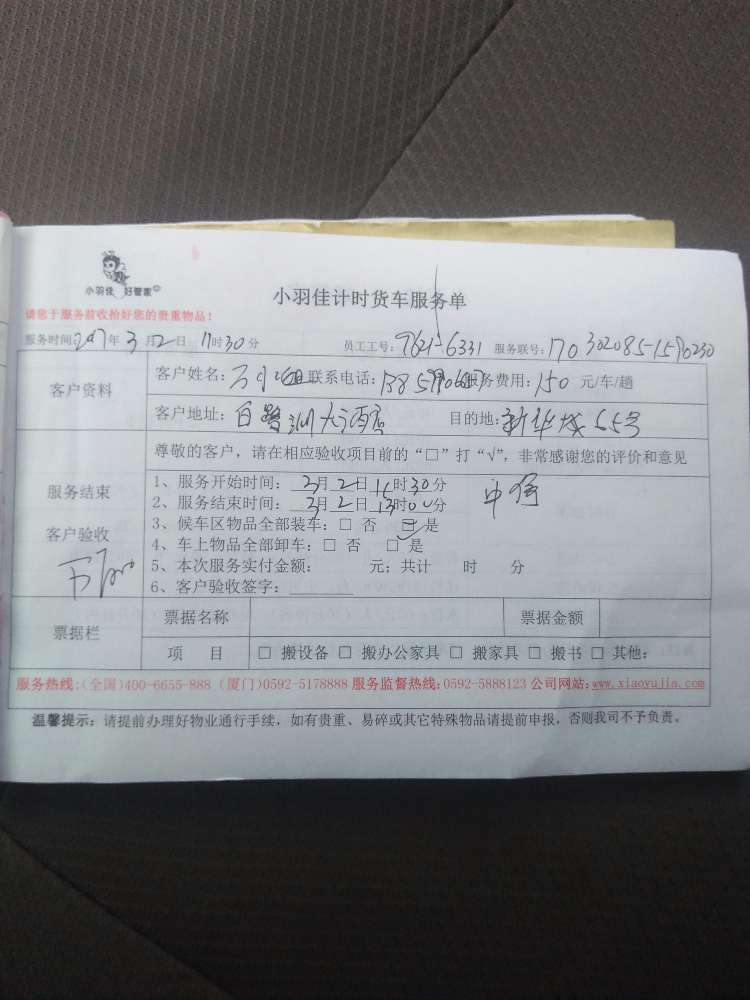 小羽佳 好管家
小羽佳计时货车服务单
请您于服务前收拾好您的贵重物品!
服务时间:2017年3月2日11时30分 员工工号: 服务联号:170302085
客户资料
客户姓名: 小姐 联系电话: 服务费用:150 元/车/趟
客户地址:白鹭洲大酒店 目的地:新华城55号
尊敬的客户,请在相应验收项目前的“□”打“√”,非常感谢您的评价和意见
服务结束
客户验收
1、服务开始时间:3月2日 时30分
2、服务结束时间:3月2日13时00分
3、候车区物品全部装车:□ 否 □ 是
4、车上物品全部卸车:□ 否 □ 是
5、本次服务实付金额: 元;共计 时 分
6、客户验收签字:
票据栏
票据名称 票据金额
项 目 □ 搬设备 □ 搬办公家具 □ 搬家具 □ 搬书 □ 其他:
服务热线:(全国)400-6655-888 (厦门)0592-5178888 服务监督热线:0592-5888123 公司网站:www.xiaoyujia.com
温馨提示:请提前办理好物业通行手续,如有贵重、易碎或其它特殊物品请提前申报,否则我司不予负责。